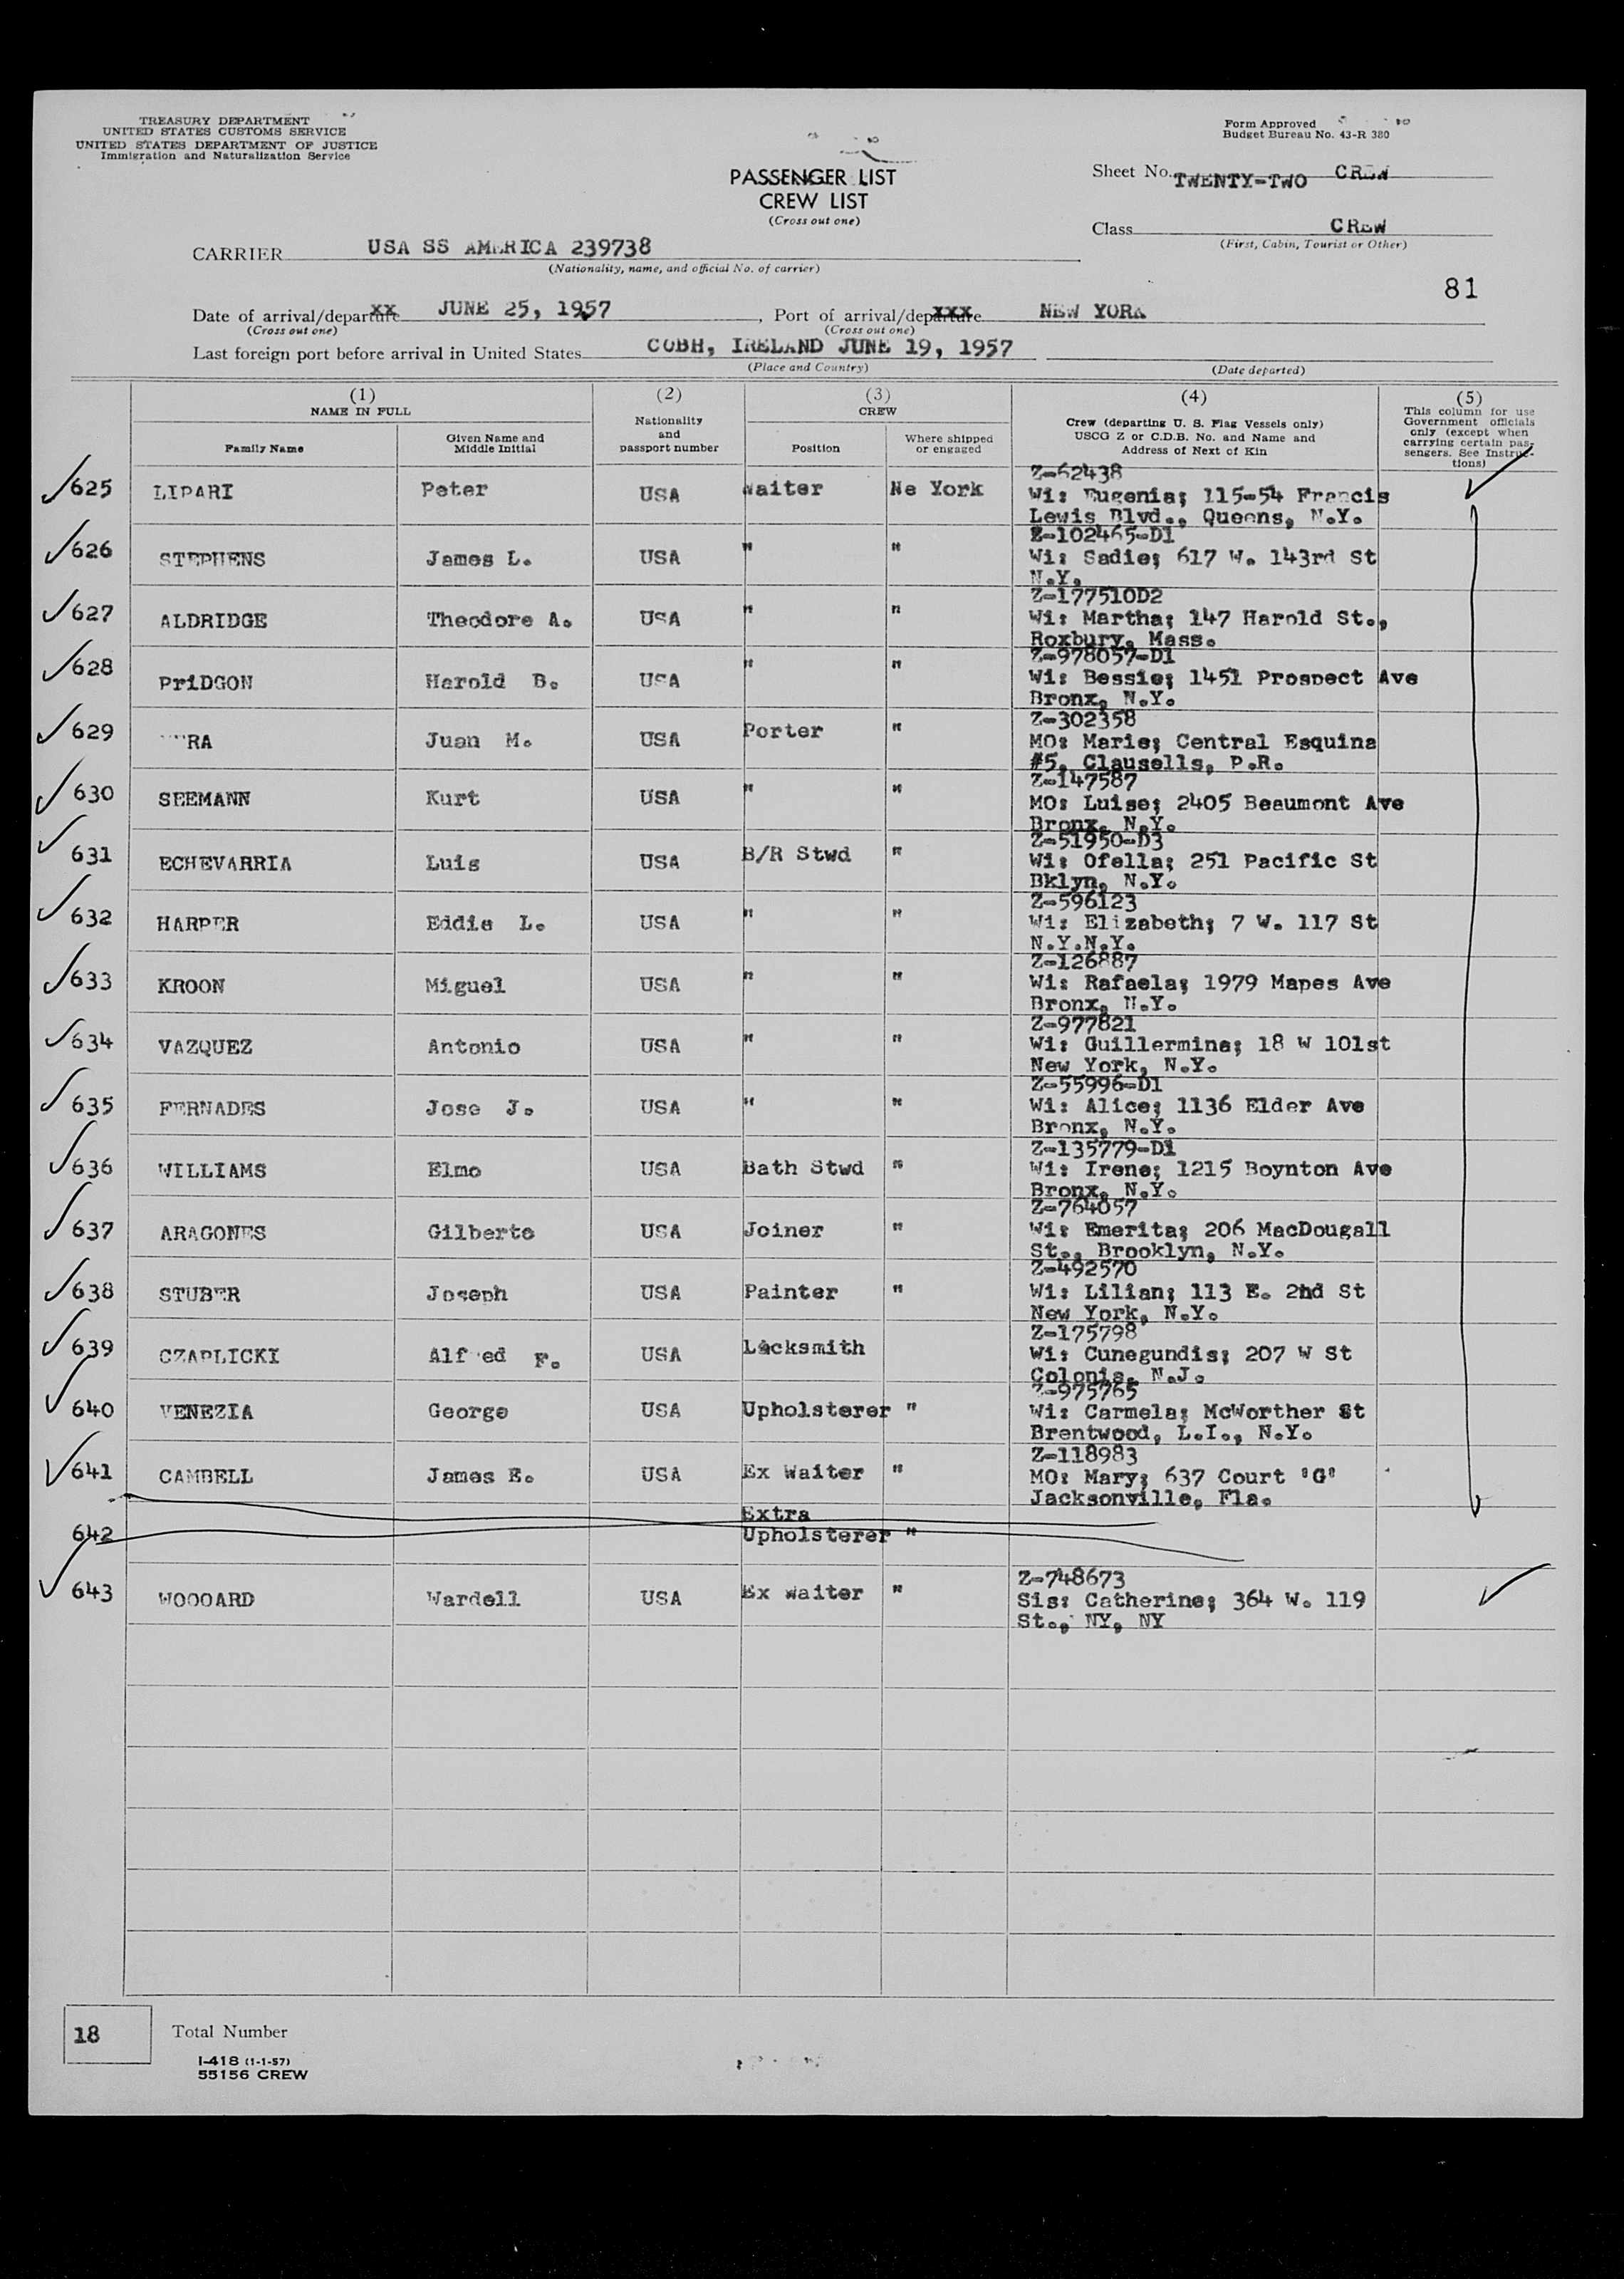 TREASURY DEPARTMENT
UNITED STATES CUSTOMS SERVICE
UNITED STATES DEPARTMENT OF JUSTICE
Immigration and Naturalization Service
Form Approved
Budget Bureau No. 43-R 380
PASSENGER LIST
CREW LIST
(Cross out one)
Sheet No. TWENTY-TWO CREW
Class CREW
(First, Cabin, Tourist or Other)
CARRIER USA SS AMERICA 239738
(Nationality, name, and official No. of carrier)
81
Date of arrival/departure xx JUNE 25, 1957, Port of arrival/departure xxx NEW YORK
(Cross out one) (Cross out one)
Last foreign port before arrival in United States COBH, IRELAND JUNE 19, 1957
(Place and Country) (Date departed)
(1) NAME IN FULL
Family Name
Given Name and Middle Initial
(2) Nationality and passport number
(3) CREW
Position
Where shipped or engaged
(4) Crew (departing U. S. Flag Vessels only) USCG Z or C.D.B. No. and Name and Address of Next of Kin
(5) This column for use Government officials only (except when carrying certain passengers. See Instructions)
625 LIPARI Peter USA Waiter Ne York Z-62438
Wi: Eugenia; 115-54 Francis
Lewis Blvd., Queens, N.Y.
626 STEPHENS James L. USA " " Z-102465-D1
Wi: Sadie; 617 W. 143rd St
N.Y.
627 ALDRIDGE Theodore A. USA " " Z-177510D2
Wi: Martha; 147 Harold St.,
Roxbury, Mass.
628 PriDGON Harold B. USA " " Z-978057-D1
Wi: Bessie; 1451 Prospect Ave
Bronx, N.Y.
629 Juan M. USA Porter " Z-302358
MO: Marie; Central Esquina
#5, Clausells, P.R.
630 SEEMANN Kurt USA " " Z-147587
MO: Luise; 2405 Beaumont Ave
Bronx, N.Y.
631 ECHEVARRIA Luis USA B/R Stwd " Z-51950-D3
Wi: Ofella; 251 Pacific St
Bklyn, N.Y.
632 HARPER Eddie L. USA " " Z-596123
Wi: Elizabeth; 7 W. 117 St
N.Y.N.Y.
633 KROON Miguel USA " " Z-126887
Wi: Rafaela; 1979 Mapes Ave
Bronx, N.Y.
634 VAZQUEZ Antonio USA " " Z-977821
Wi: Guillermina; 18 W 101st
New York, N.Y.
635 FERNADES Jose J. USA " " Z-55996-D1
Wi: Alice; 1136 Elder Ave
Bronx, N.Y.
636 WILLIAMS Elmo USA Bath Stwd " Z-135779-D1
Wi: Irene; 1215 Boynton Ave
Bronx, N.Y.
637 ARAGONES Gilberto USA Joiner " Z-764057
Wi: Emerita; 206 MacDougall
St., Brooklyn, N.Y.
638 STUBER Joseph USA Painter " Z-492570
Wi: Lilian; 113 E. 2nd St
New York, N.Y.
639 CZAPLICKI Alfred F. USA Locksmith Z-175798
Wi: Cunegundis; 207 W St
Colonia, N.J.
640 VENEZIA George USA Upholsterer " Z-975765
Wi: Carmela; McWorther St
Brentwood, L.I., N.Y.
641 CAMBELL James E. USA Ex Waiter " Z-118983
MO: Mary; 637 Court 'G'
Jacksonville, Fla.
642 Extra
Upholsterer "
643 WOOOARD Wardell USA Ex Waiter " Z-748673
Sis: Catherine; 364 W. 119
St., NY, NY
18 Total Number
I-418 (1-1-57)
55156 CREW